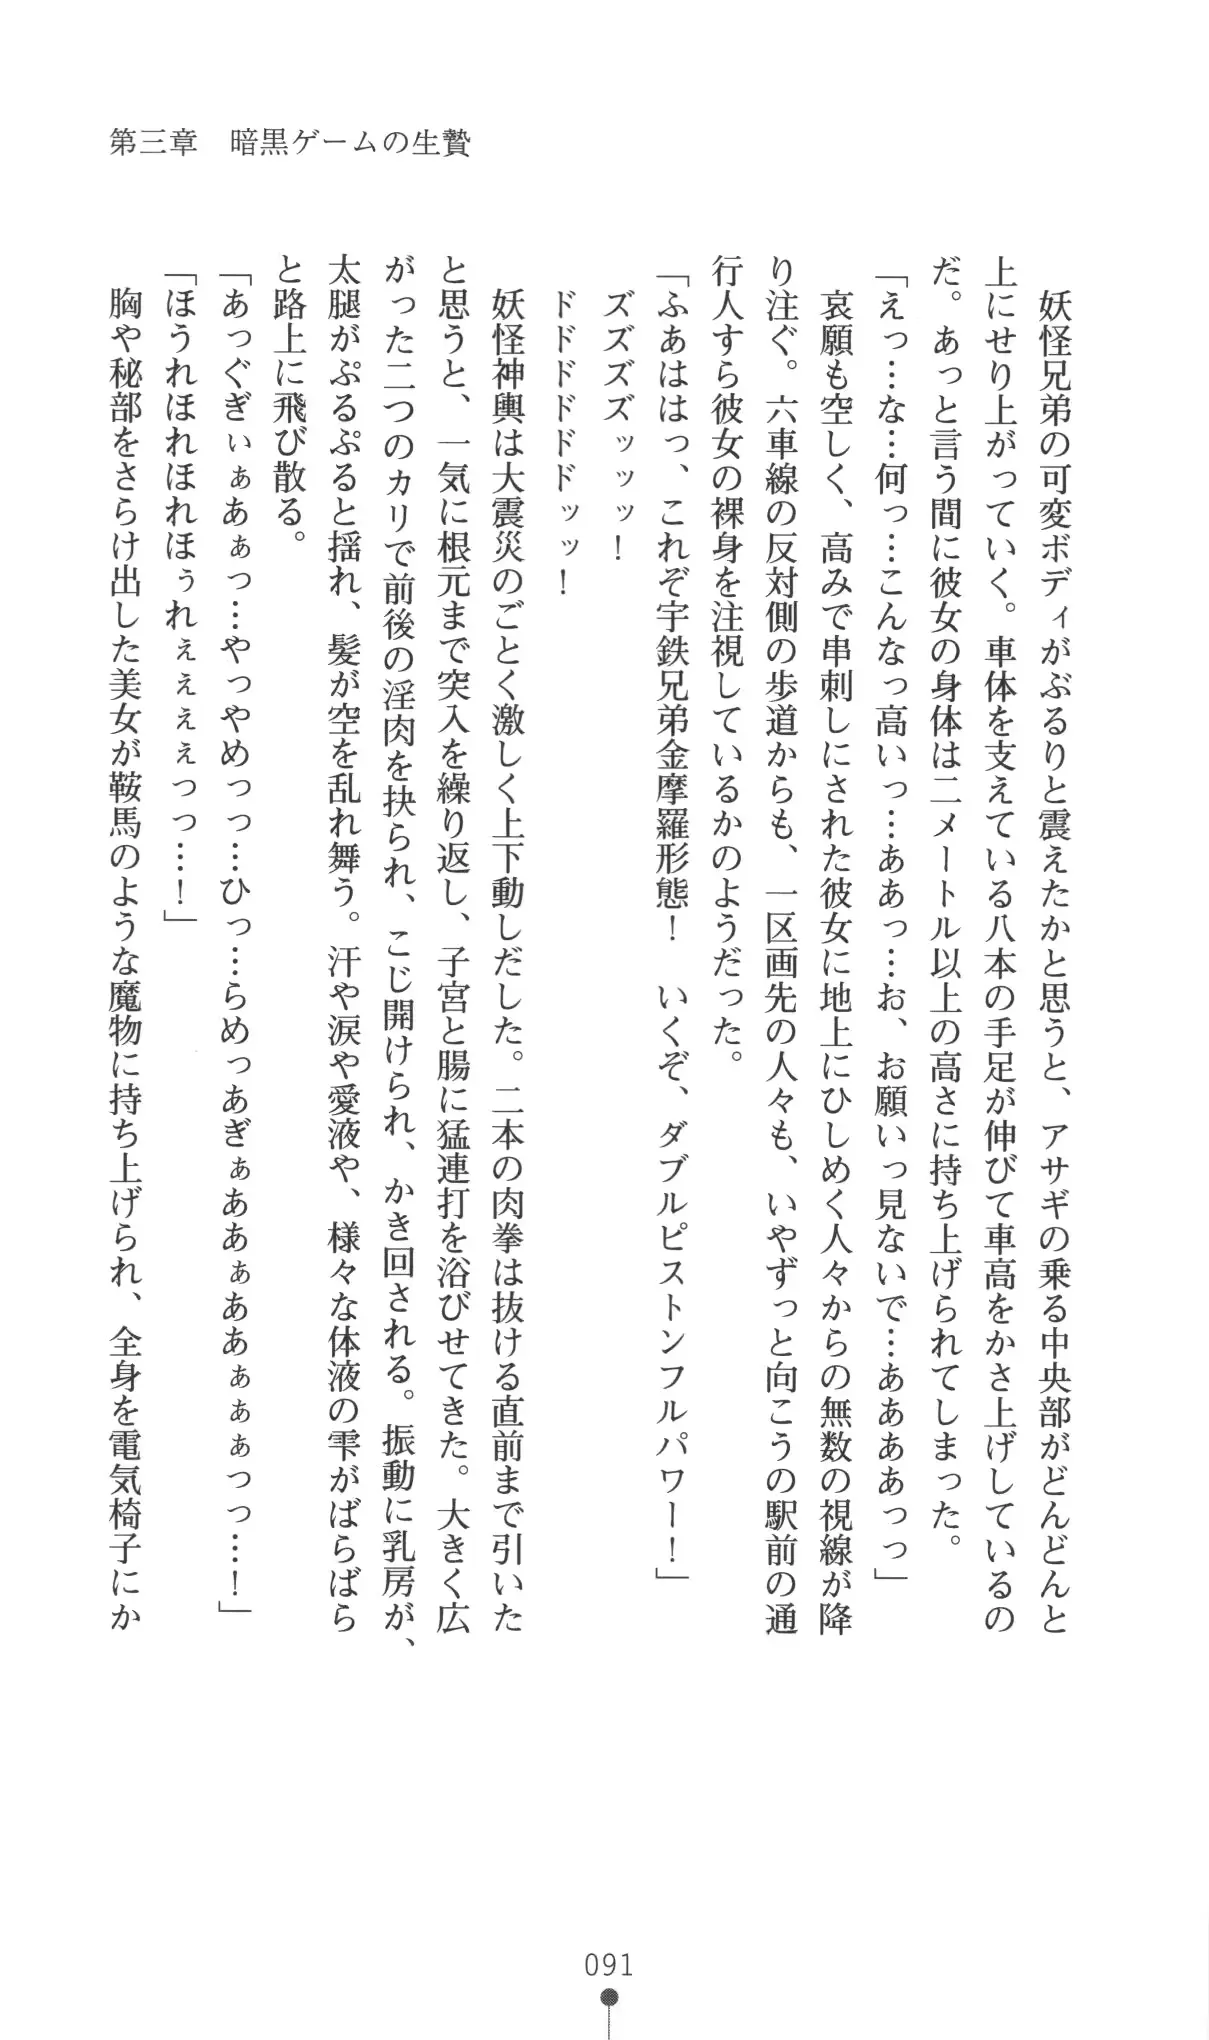 第三章　暗黒ゲームの生贄
　妖怪兄弟の可変ボディがぶるりと震えたかと思うと、アサギの乗る中央部がどんどんと
上にせり上がっていく。車体を支えている八本の手足が伸びて車高をかさ上げしているの
だ。あっと言う間に彼女の身体は二メートル以上の高さに持ち上げられてしまった。
「えっ…な…何っ…こんなっ高いっ…ああっ…お、お願いっ見ないで…ああああっっ」
　哀願も空しく、高みで串刺しにされた彼女に地上にひしめく人々からの無数の視線が降
り注ぐ。六車線の反対側の歩道からも、一区画先の人々も、いやずっと向こうの駅前の通
行人すら彼女の裸身を注視しているかのようだった。
「ふあははっ、これぞ宇鉄兄弟金摩羅形態！　いくぞ、ダブルピストンフルパワー！」
　ズズズズッッッ！
　ドドドドドドッッ！
　妖怪神輿は大震災のごとく激しく上下動しだした。二本の肉拳は抜ける直前まで引いた
と思うと、一気に根元まで突入を繰り返し、子宮と腸に猛連打を浴びせてきた。大きく広
がった二つのカリで前後の淫肉を抉られ、こじ開けられ、かき回される。振動に乳房が、
太腿がぷるぷると揺れ、髪が空を乱れ舞う。汗や涙や愛液や、様々な体液の雫がばらばら
と路上に飛び散る。
「あっぐぎぃぁあぁっ…やっやめっっ…ひっ…らめっあぎぁああぁああぁぁぁっっ…！」
「ほうれほれほれほぅれぇぇぇぇっっ…！」
　胸や秘部をさらけ出した美女が鞍馬のような魔物に持ち上げられ、全身を電気椅子にか
091